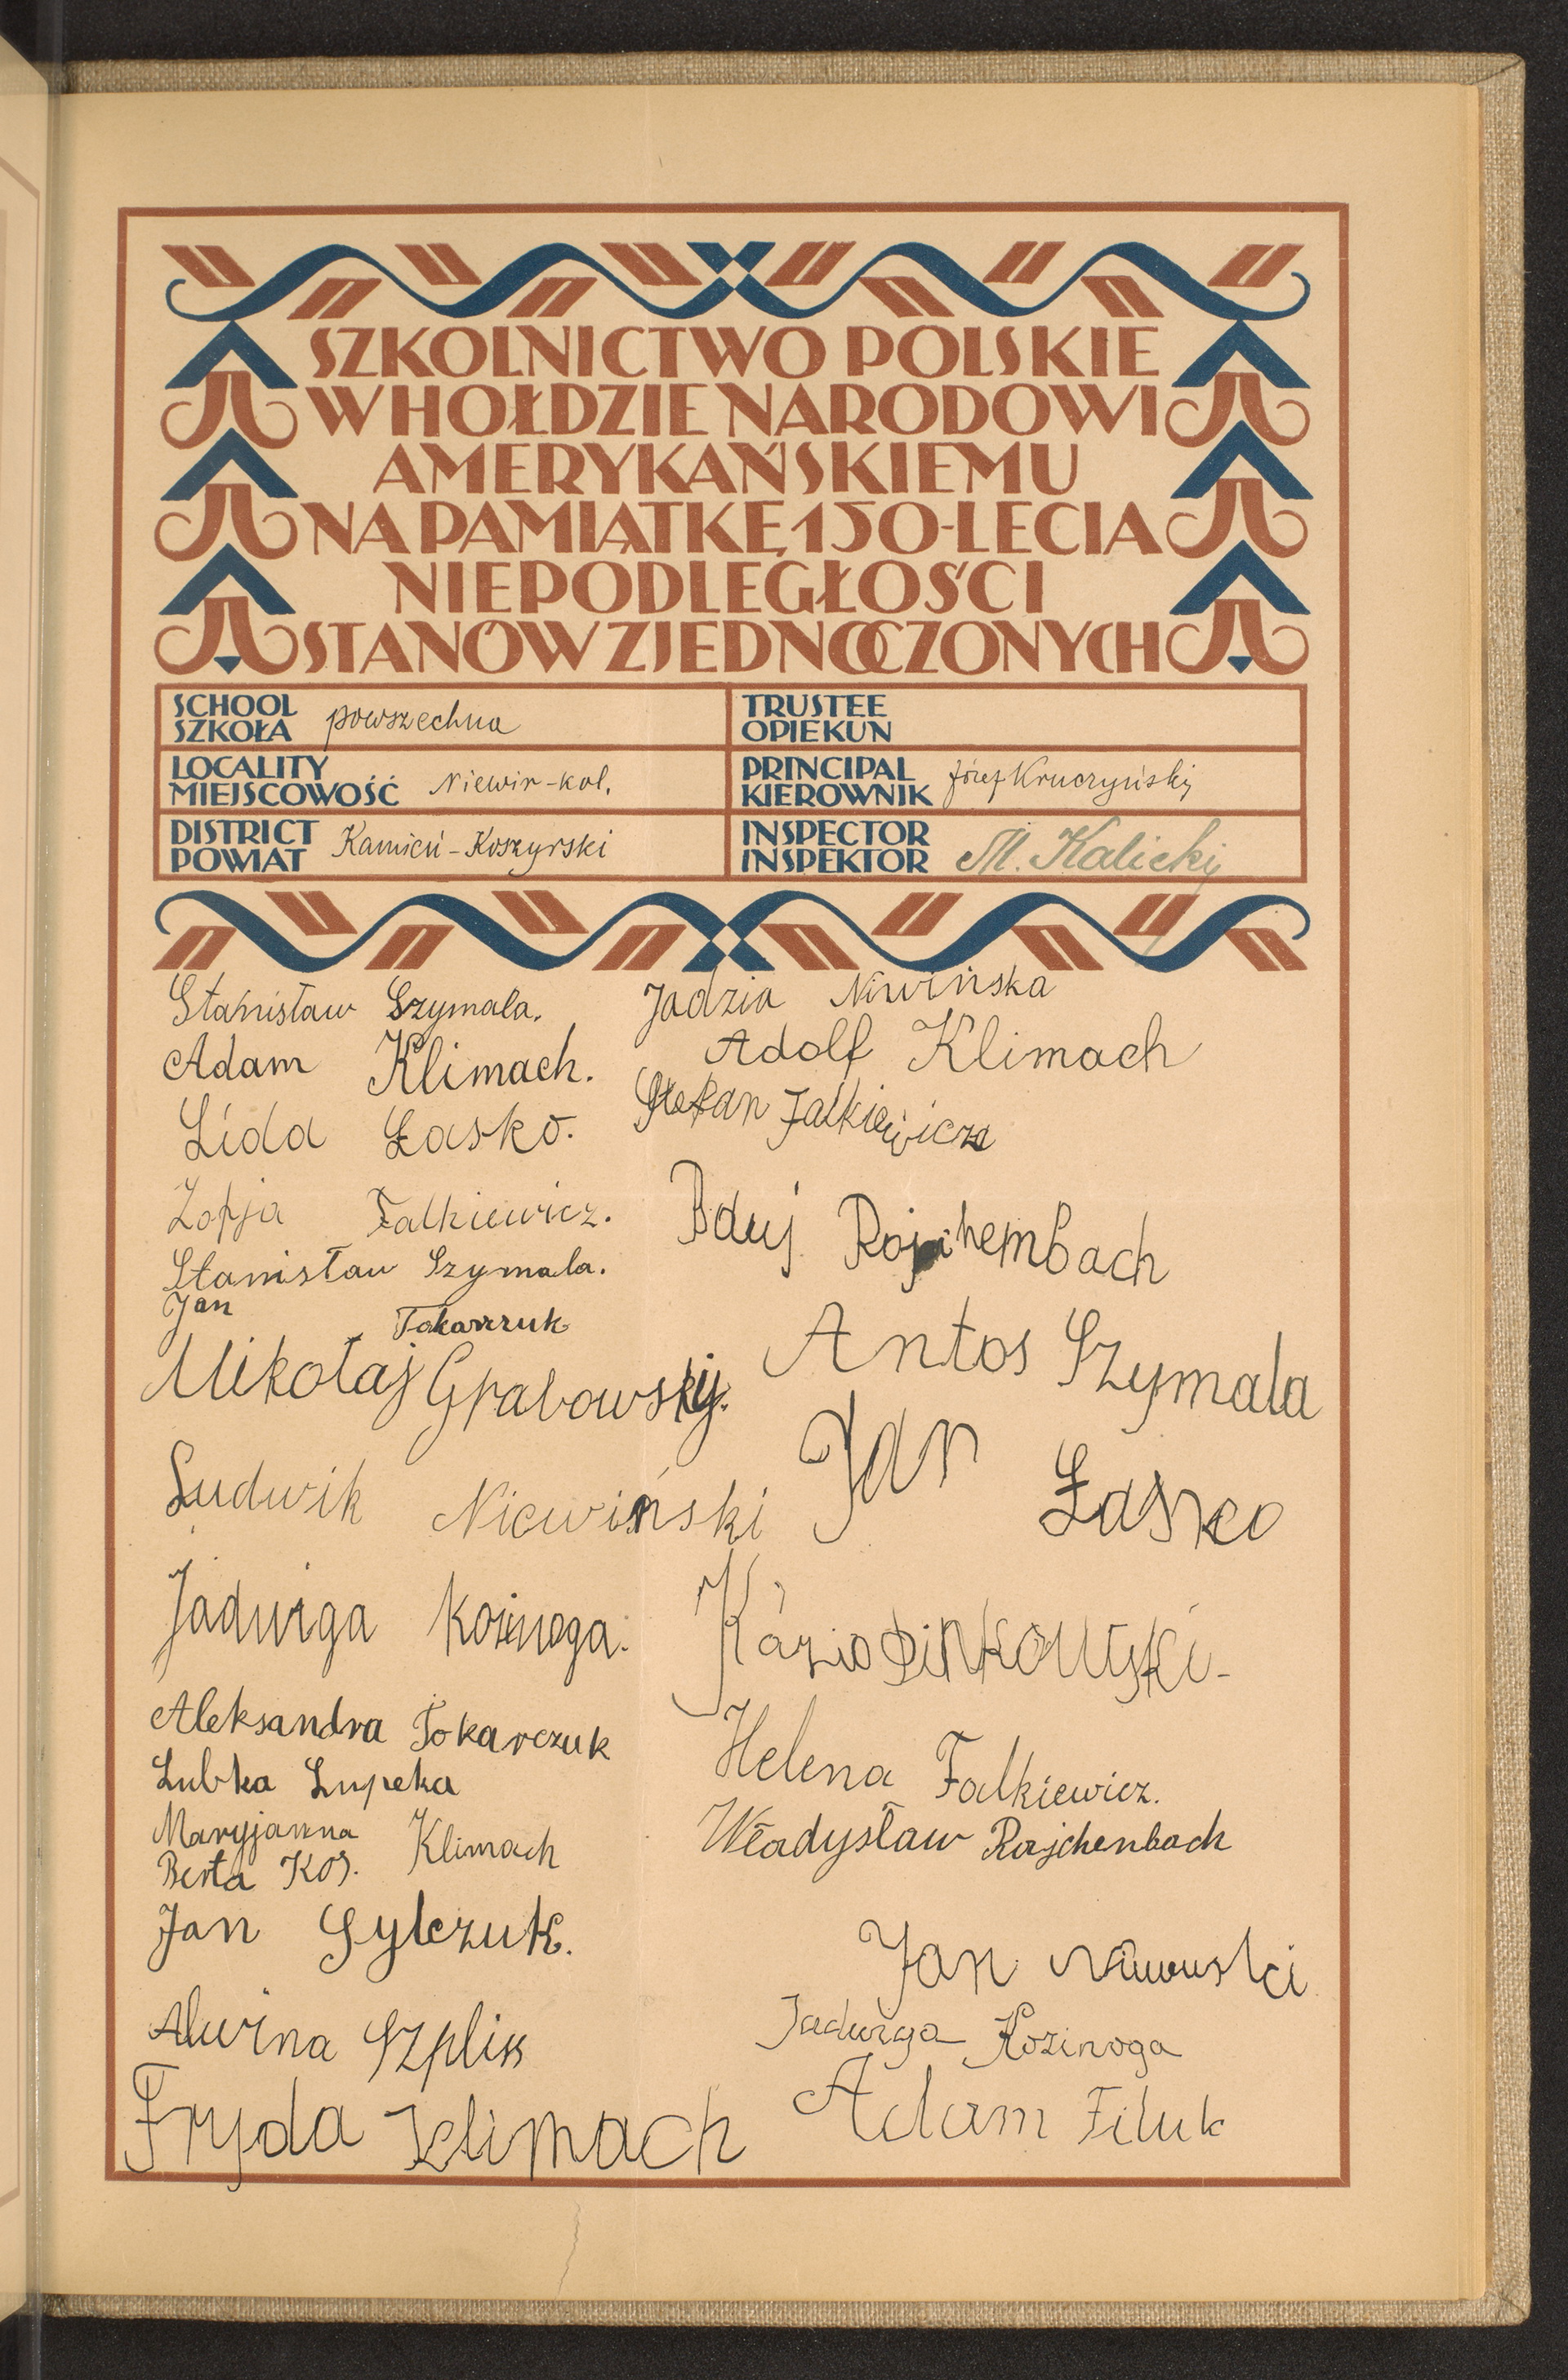 SZKOLNICTWO POLSKIE
W HOŁDZIE NARODOWI
AMERYKAŃSKIEMU
NA PAMIĄTKĘ 150-LECIA
NIEPODLEGŁOŚCI
STANÓW ZJEDNOCZONYCH
SCHOOL
SZKOŁA powszechna
TRUSTEE
OPIEKUN
LOCALITY
MIEJSCOWOŚĆ Niewir-kol.
PRINCIPAL
KIEROWNIK Józef Kruczyński
DISTRICT
POWIAT Kamień-Koszyrski
INSPECTOR
INSPEKTOR M. Kalicki
Stanisław Szymala.
Adam Klimach.
Lida Łasko.
Zofja Falkiewicz.
Stanisław Szymala.
Jan Tokarczuk
Mikołaj Grabowskij.
Ludwik Niewiński
Jadwiga Kozinoga.
Aleksandra Tokarczuk
Lubka Lupeka
Maryjanna Klimach
Berta Kos.
Jan Sylczuk.
Alwina Szplis
Fryda Klimach
Jadzia Niwińska
Adolf Klimach
Stefan Falkiewicz
Rojchembach
Antos Szymala
Jan Łasko
Kazio
Helena Falkiewicz.
Władysław Rajchenbach
Jan
Jadwiga Kozinoga
Adam Filuk